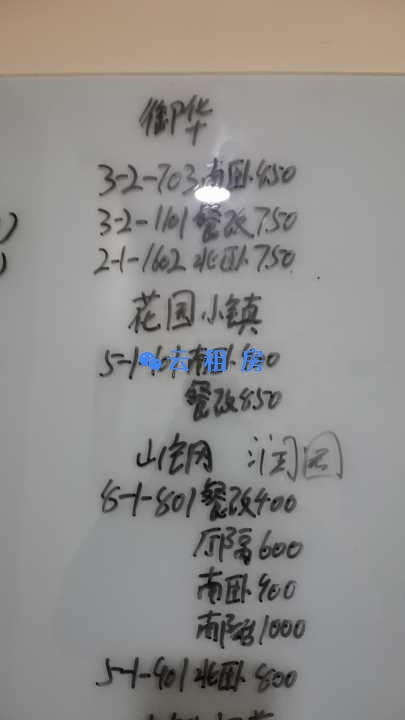 御华
3-2-703南卧850
3-2-1101餐改750
2-1-1602北卧750
花园小镇
云租房
餐改850
润园
8-1-801餐改400
厅隔600
南卧900
1000
5-1-901北卧800